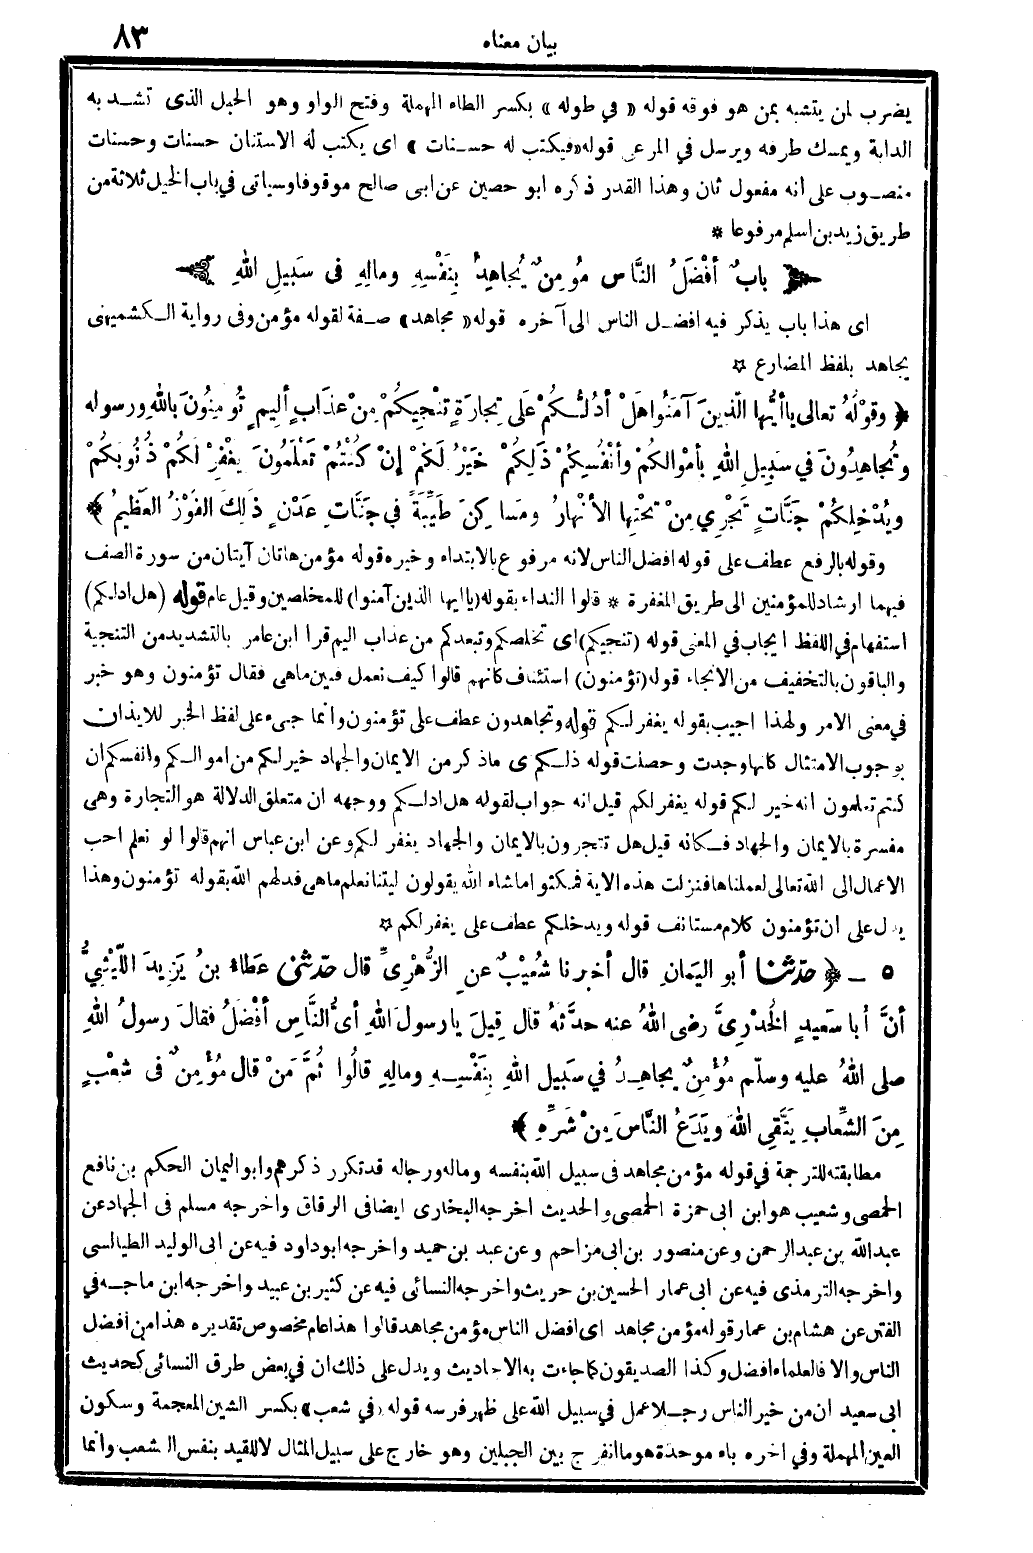 بيان معناه
٨٣
يضرب لمن يتشبه بمن هو فوقه قوله « في طوله » بكسر الطاء المهملة وفتح الواو وهو الحبل الذى تشد به
الدابة ويمسك طرفه ويرسل في المرعى قوله «فيكتب له حسنات » اى يكتب له الاستنان حسنات وحسنات
منصوب على انه مفعول ثان وهذا القدر ذكره ابو حصين عن ابى صالح موقوفا وسياتى في باب الخيل ثلاثة من
طريق زيد بن اسلم مرفوعا *
بابٌ أفْضَلُ النَّاسِ مُؤمِنٌ يُجاهِدُ بِنَفْسِهِ ومالِهِ فى سَبيلِ اللهِ
اى هذا باب يذكر فيه افضل الناس الى آخره قوله « مجاهد » صفة لقوله مؤمن وفى رواية الكشميهنى
يجاهد بلفظ المضارع ☆
﴿ وقوْلُهُ تعالى ياأيُّها الّذِينَ آمَنُوا هَلْ أدُلُّكُمْ عَلَى تِجارَةٍ تنْجِيكُمْ مِنْ عَذَابٍ أليمٍ تُومِنُونَ باللهِ ورسوله
وتُجاهِدُونَ في سَبِيلِ اللهِ بأمْوالكُمْ وأنْفُسِكُمْ ذَلِكُمْ خَيْرٌ لَكُمْ إنْ كُنْتُمْ تَعْلَمُونَ يغْفِرْ لَكُمْ ذُنُوبكُمْ
ويُدْخِلكُمْ جَنَّاتٍ تَجْرِي مِنْ تحْتِها الأنْهارُ ومَساكِنَ طَيِّبَةً في جَنَّاتِ عَدْنٍ ذَلِكَ الفَوْزُ العَظِيمُ ﴾ *
وقوله بالرفع عطف على قوله افضل الناس لانه مرفوع بالابتداء وخبره قوله مؤمن هاتان آيتان من سورة الصف
فيهما ارشاد للمؤمنين الى طريق المغفرة * قالوا النداء بقوله (يا ايها الذين آمنوا) للمخلصين وقيل عام قوله (هل ادلكم)
استفهام في اللفظ ايجاب في المعنى قوله (تنجيكم) اى تخلصكم وتبعدكم من عذاب اليم قرا ابن عامر بالتشديد من التنجية
والباقون بالتخفيف من الانجاء قوله (تؤمنون) استئناف كانهم قالوا كيف نعمل فبين ماهى فقال تؤمنون وهو خبر
في معنى الامر ولهذا اجيب بقوله يغفر لكم قوله وتجاهدون عطف على تؤمنون وانما جىء على لفظ الخبر للايذان
بوجوب الامتثال كانها وجدت وحصلت قوله ذلكم ى ماذكر من الايمان والجهاد خير لكم من اموالكم وانفسكم ان
كنتم تعلمون انه خير لكم قوله يغفر لكم قيل انه جواب لقوله هل ادلكم ووجهه ان متعلق الدلالة هو التجارة وهى
مفسرة بالايمان والجهاد فكانه قيل هل تتجرون بالايمان والجهاد يغفر لكم وعن ابن عباس انهم قالوا لو نعلم احب
الاعمال الى الله تعالى لعملناها فنزلت هذه الاية فمكثوا ماشاء الله يقولون ليتنا نعلم ماهى فدلهم الله بقوله تؤمنون وهذا
يدل على ان تؤمنون كلام مستانف قوله ويدخلكم عطف على يغفر لكم ☆
٥ ـ ﴿ حدّثنا أبو اليَمانِ قال أخبرنا شُعَيْبٌ عنِ الزُّهْرِىِّ قال حدّثنى عَطاءُ بنُ يَزِيدَ اللَّيْثِيُّ
أنَّ أبا سَعيدٍ الخُدْرِىَّ رضى اللهُ عنه حدَّثَهُ قال قِيلَ يارسولَ اللهِ أىُّ النَّاسِ أفْضَلُ فقالَ رسولُ اللهِ
صلى اللهُ عليه وسلّم مُؤْمِنٌ يجاهِدُ في سَبيل اللهِ بِنَفْسِهِ ومالِهِ قالُوا ثُمَّ مَنْ قال مُؤْمِنٌ فى شِعْبٍ
مِنَ الشِّعابِ يَتَّقِى اللهَ ويَدَعُ النَّاسَ مِنْ شَرِّهِ ﴾ *
مطابقته للترجمة في قوله مؤمن مجاهد فى سبيل الله بنفسه وماله ورجاله قد تكرر ذكرهم وابو اليمان الحكم بن نافع
الحمصى وشعيب هو ابن ابى حمزة الحمصى والحديث اخرجه البخارى ايضا فى الرقاق واخرجه مسلم فى الجهاد عن
عبدالله بن عبدالرحمن وعن منصور بن ابى مزاحم وعن عبد بن حميد واخرجه ابو داود فيه عن ابى الوليد الطيالسى
واخرجه الترمذى فيه عن ابى عمار الحسين بن حريث واخرجه النسائى فيه عن كثير بن عبيد واخرجه ابن ماجه في
الفتن عن هشام بن عمار قوله مؤمن مجاهد اى افضل الناس مؤمن مجاهد قالوا هذا عام مخصوص تقديره هذا من أفضل
الناس والا فالعلماء افضل وكذا الصديقون كما جاءت به الاحاديث ويدل على ذلك ان في بعض طرق النسائى كحديث
ابى سعيد ان من خير الناس رجلا عمل في سبيل الله على ظهر فرسه قوله «في شعب» بكسر الشين المعجمة وسكون
العين المهملة وفي اخره باء موحدة هو ما انفرج بين الجبلين وهو خارج على سبيل المثال لا للقيد بنفس الشعب وانما